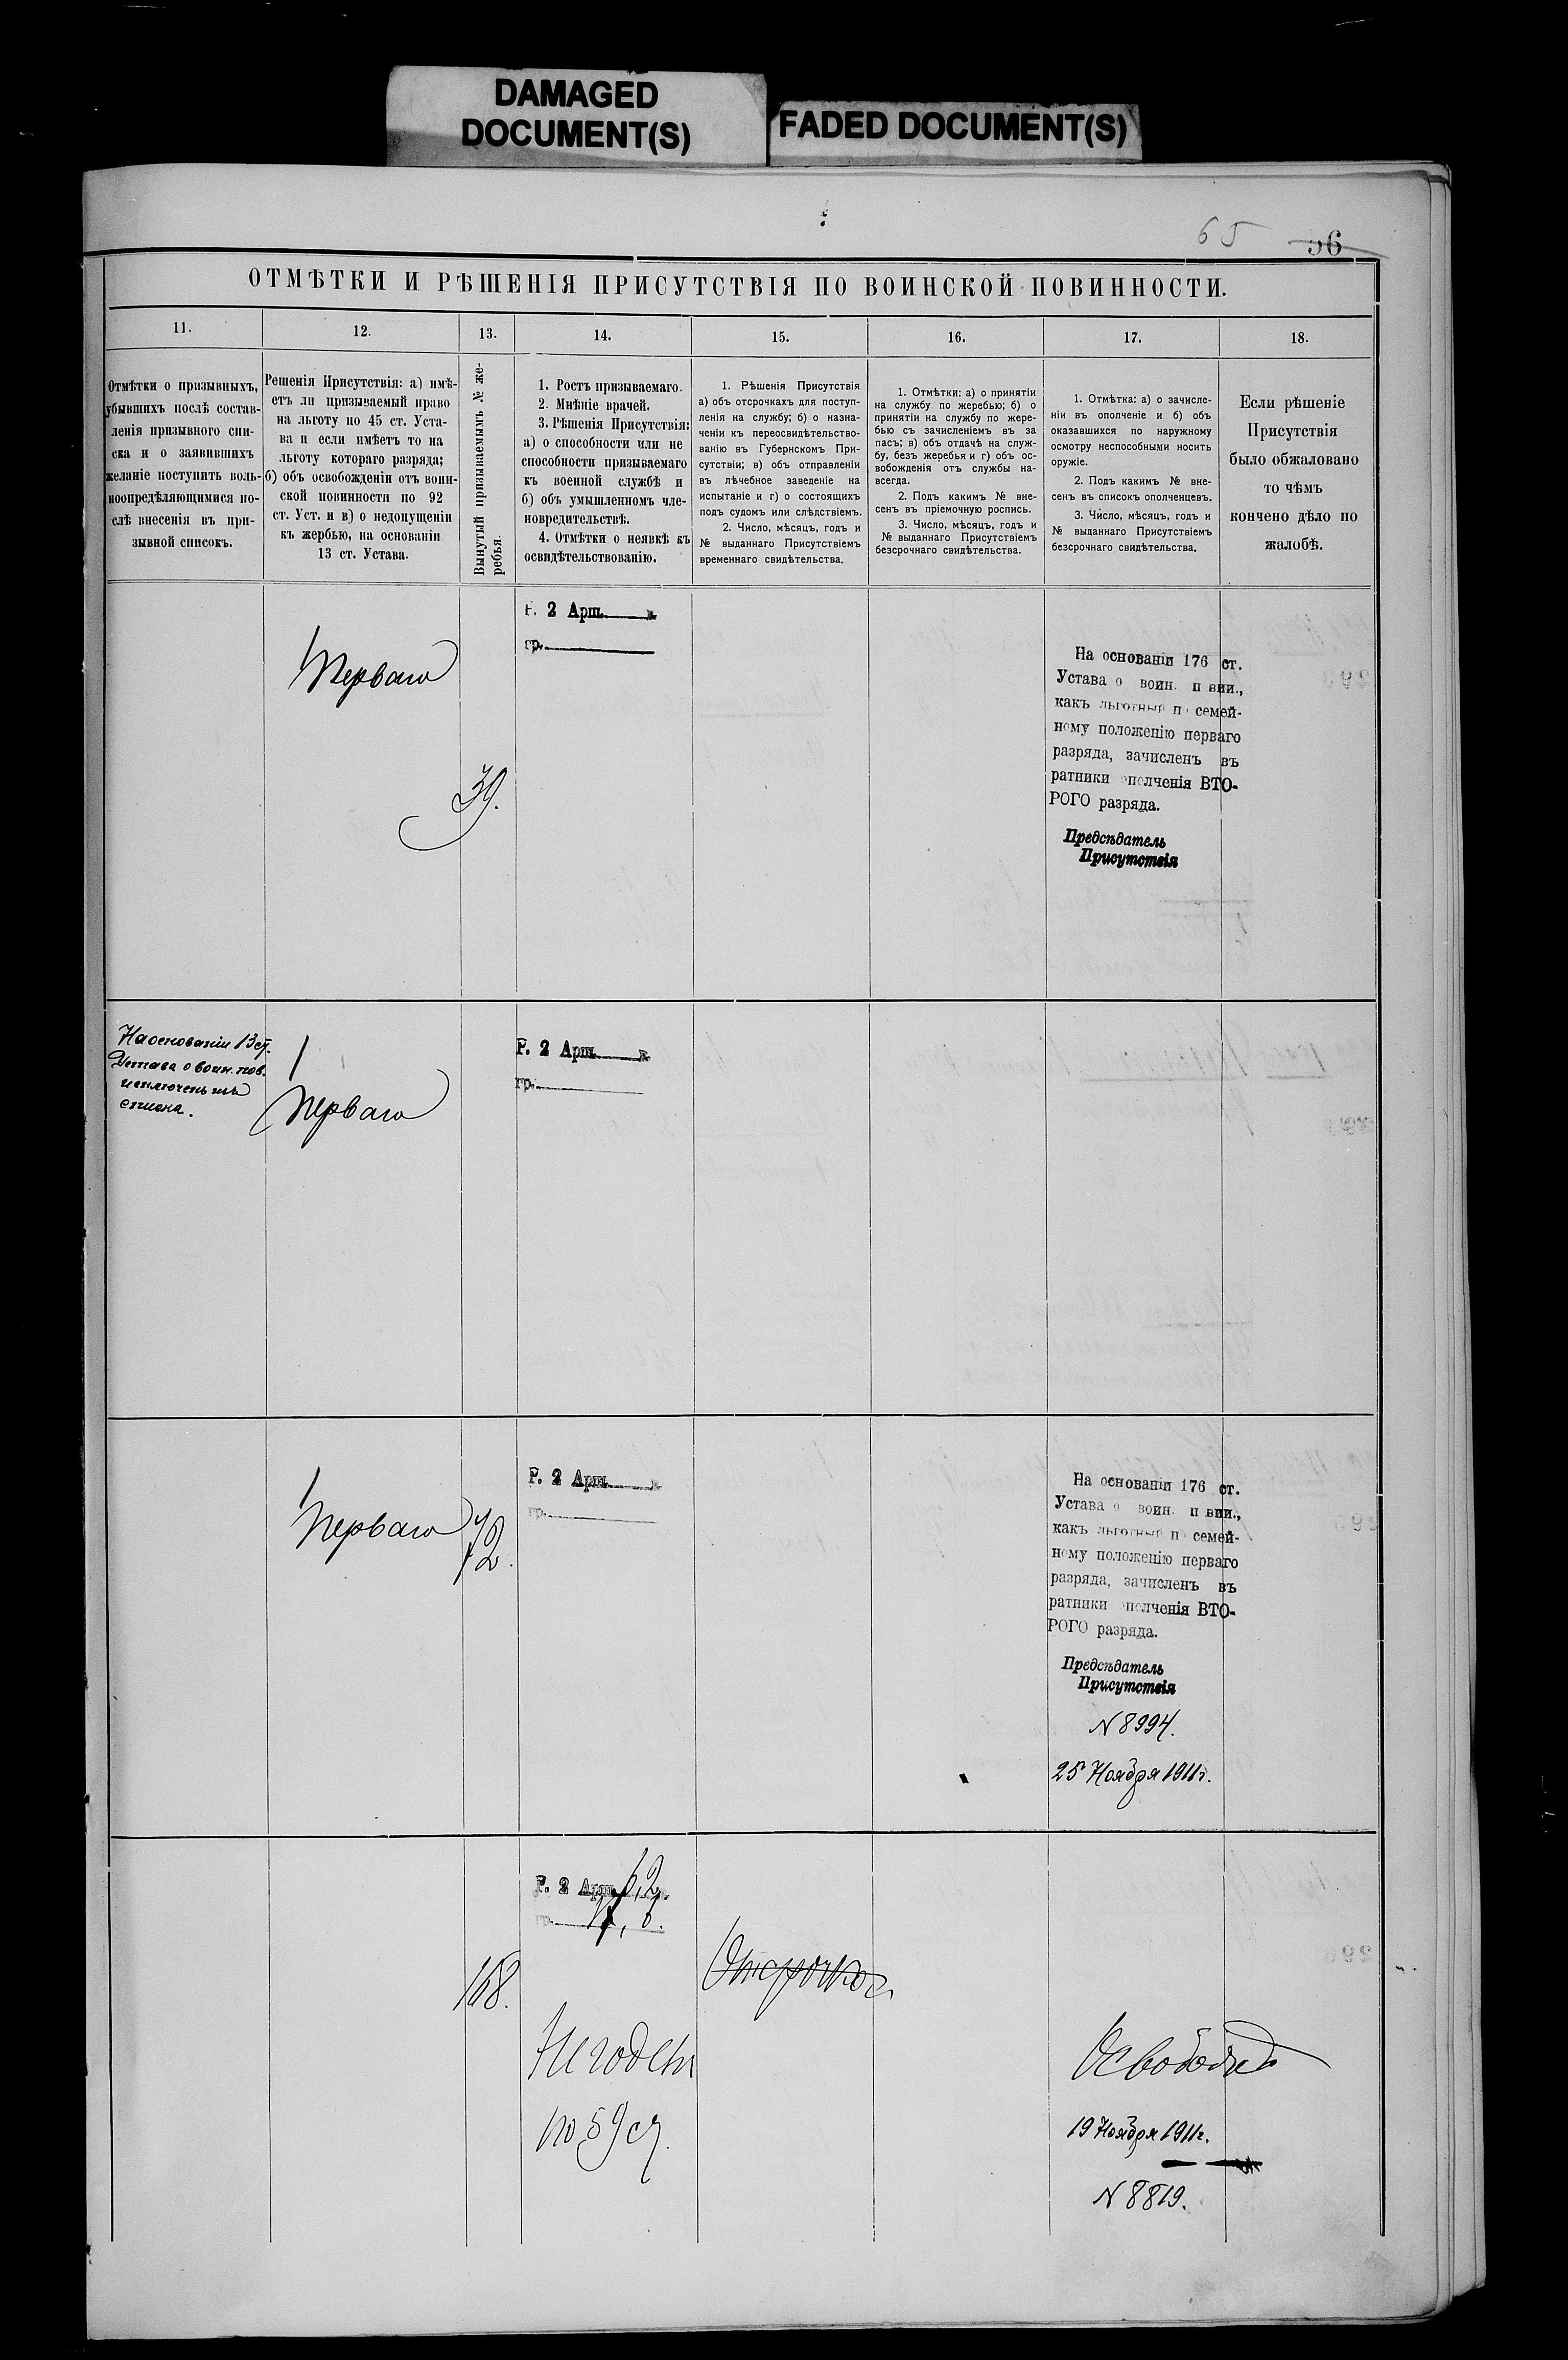 DAMAGED
DOCUMENT(S)
FADED DOCUMENT(S)
65
56
ОТМѢТКИ И РѢШЕНІЯ ПРИСУТСТВІЯ ПО ВОИНСКОЙ ПОВИННОСТИ.
11.
12.
13.
14.
15.
16.
17.
18.
Отмѣтки о призывныхъ,
убывшихъ послѣ состав-
ленія призывного спи-
ска и о заявившихъ
желаніе поступить воль-
ноопредѣляющимися по-
слѣ внесенія въ при-
зывной списокъ.
Решенія Присутствія: а) имѣ-
етъ ли призываемый право
на льготу по 45 ст. Уста-
ва и если имѣетъ то на
льготу котораго разряда;
б) объ освобожденіи отъ воин-
ской повинности по 92
ст. Уст. и в) о недопущеніи
къ жербью, на основаніи
13 ст. Устава.
Вынутый призываемымъ № же-
ребья.
1. Ростъ призываемаго.
2. Мнѣніе врачей.
3. Рѣшенія Присутствія:
а) о способности или не
способности призываемаго
къ военной службѣ и
б) объ умышленномъ чле-
новредительствѣ.
4. Отмѣтки о неявкѣ къ
освидѣтельствованію.
1. Рѣшенія Присутствія
а) объ отсрочкахъ для поступ-
ленія на службу; б) о назна-
ченіи къ переосвидѣтельство-
ванію въ Губернскомъ При-
сутствіи; в) объ отправленіи
въ лѣчебное заведеніе на
испытаніе и г) о состоящихъ
подъ судомъ или слѣдствіемъ.
2. Число, мѣсяцъ, годъ и
№ выданнаго Присутствіемъ
временнаго свидѣтельства.
1. Отмѣтки: а) о принятіи
на службу по жеребью; б) о
принятіи на службу по жере-
бью съ зачисленіемъ въ за
пасъ; в) объ отдачѣ на служ-
бу, безъ жеребья и г) объ ос-
вобожденія отъ службы на-
всегда.
2. Подъ какимъ № вне-
сенъ въ пріемочную роспись.
3. Число, мѣсяцъ, годъ и
№ выданнаго Присутствіемъ
безсрочнаго свидѣтельства.
1. Отмѣтка: а) о зачисле-
ніи въ ополченіе и б) объ
оказавшихся по наружному
осмотру неспособными носить
оружіе.
2. Подъ какимъ № вне-
сенъ въ списокъ ополченцевъ.
3. Число, мѣсяцъ, годъ и
№ выданнаго Присутствіемъ
безсрочнаго свидѣтельства.
Если рѣшеніе
Присутствія
было обжаловано
то чѣмъ
кончено дѣло по
жалобѣ.
Перваго
39.
Р. 2 Арш. в.
гр.
На основаніи 176 ст.
Устава о воин. п вин.,
какъ льготный п семей-
ному положенію перваго
разряда, зачисленъ въ
ратники ополченія ВТО-
РОГО разряда.
Предсѣдатель
Присутствія
На основаніи 13 ст.
Устава о воин. пов.
исключенъ изъ
списка.
1
Перваго
Р. 2 Арш. в.
гр.
1
Перваго
72.
Р. 2 Арш. в.
гр.
На основаніи 176 ст.
Устава о воин. п вин.,
какъ льготный п семей-
ному положенію перваго
разряда, зачисленъ въ
ратники ополченія ВТО-
РОГО разряда.
Предсѣдатель
Присутствія
N 8994.
25 Ноября 1911 г.
168.
Р. 2 Арш.
гр.
Негоденъ
по 59 ст.
Отсрочка
Освободить
19 Ноября 1911 г.
N 8819.